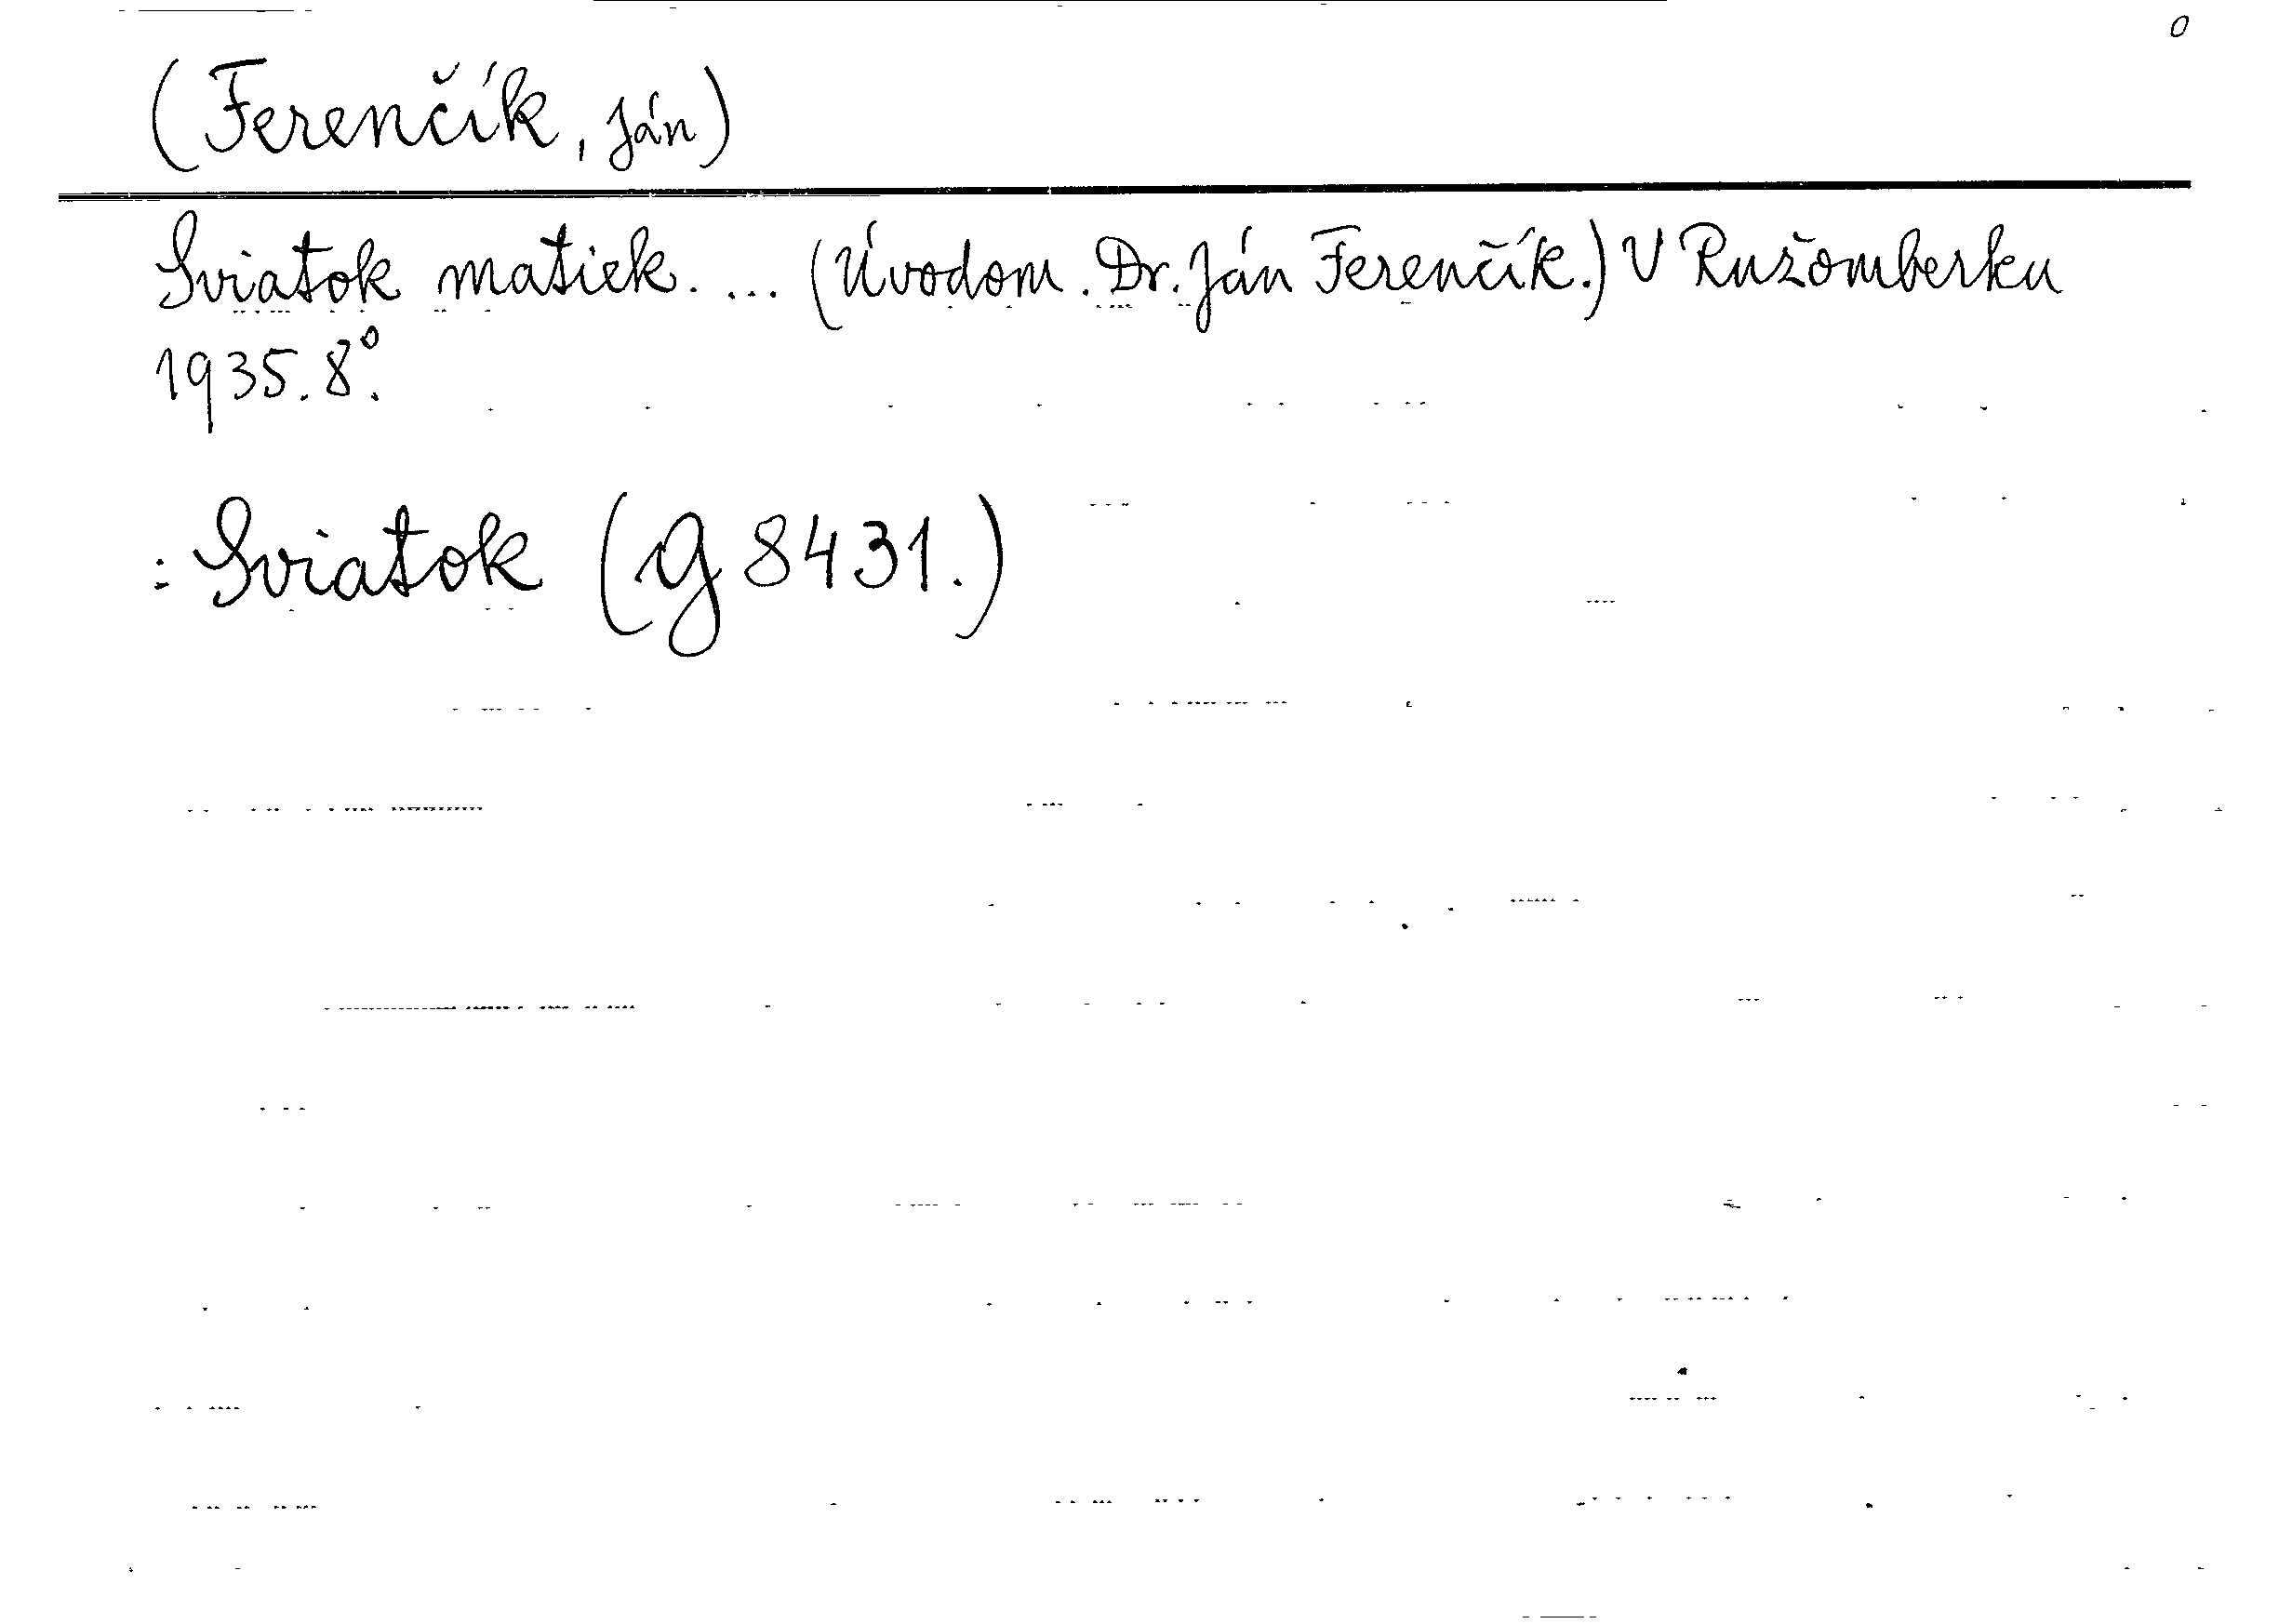 0
(Ferenčík, Ján)
Sviatok matiek. ... (Úvodom. Dr. Ján Ferenčík.) V Ružomberku
1935. 8°.
: Sviatok (G 8431.)